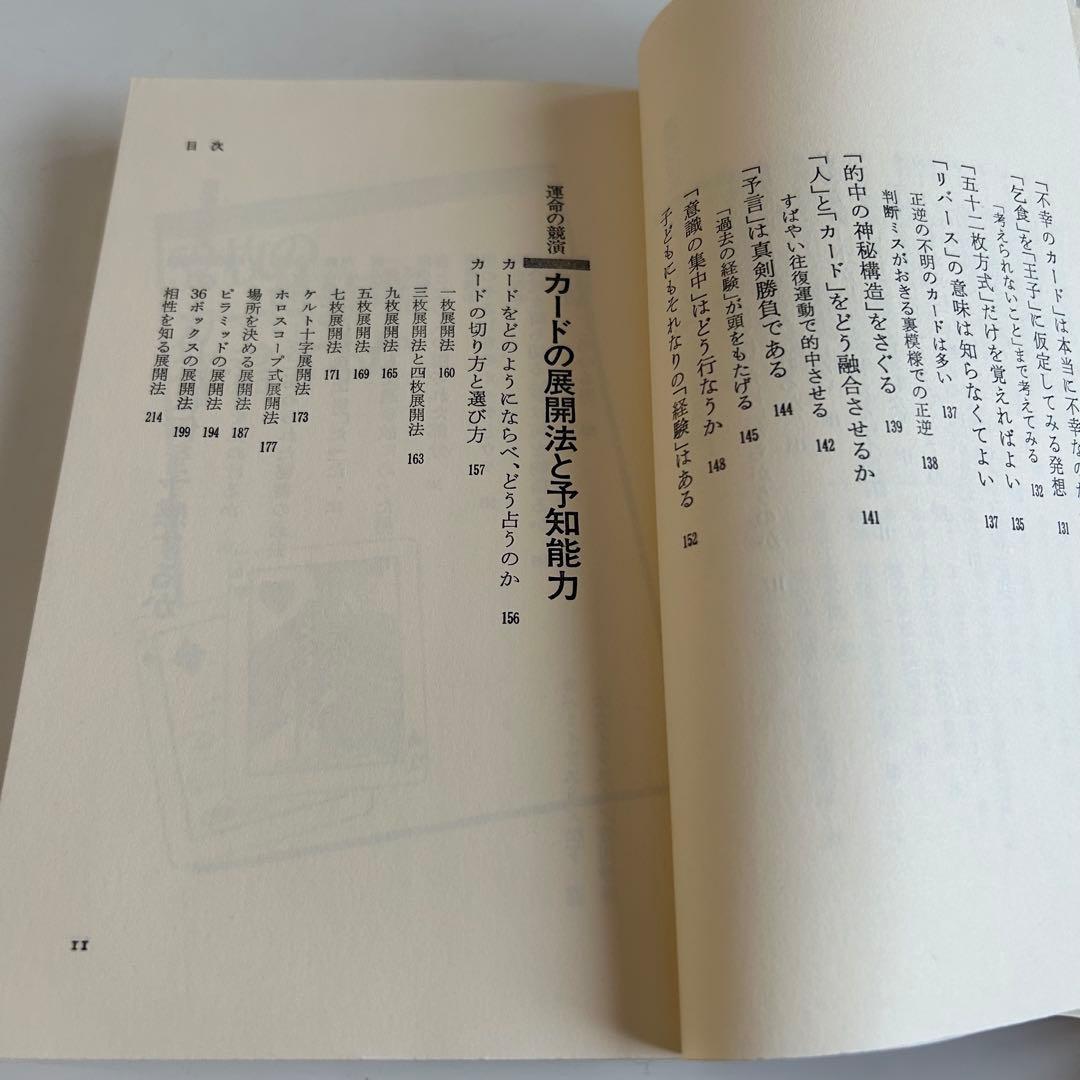 「不幸のカード」は本当に不幸なのか 131
「乞食」を「王子」に仮定してみる発想 132
「考えられないこと」まで考えてみる 135
「五十二枚方式」だけを覚えればよい 137
「リバース」の意味は知らなくてよい 137
正逆の不明のカードは多い 138
判断ミスがおきる裏模様での正逆 139
「的中の神秘構造」をさぐる 141
「人」と「カード」をどう融合させるか 142
すばやい往復運動で的中させる 144
「予言」は真剣勝負である 145
「過去の経験」が頭をもたげる 148
「意識の集中」はどう行なうか 152
子どもにもそれなりの「経験」はある
目次
運命の競演
カードの展開法と予知能力
カードをどのようにならべ、どう占うのか 156
カードの切り方と選び方 157
一枚展開法 160
三枚展開法と四枚展開法 163
九枚展開法 165
五枚展開法 169
七枚展開法 171
ケルト十字展開法 173
ホロスコープ式展開法 177
場所を決める展開法 187
ピラミッドの展開法 194
36ボックスの展開法 199
相性を知る展開法 214
11